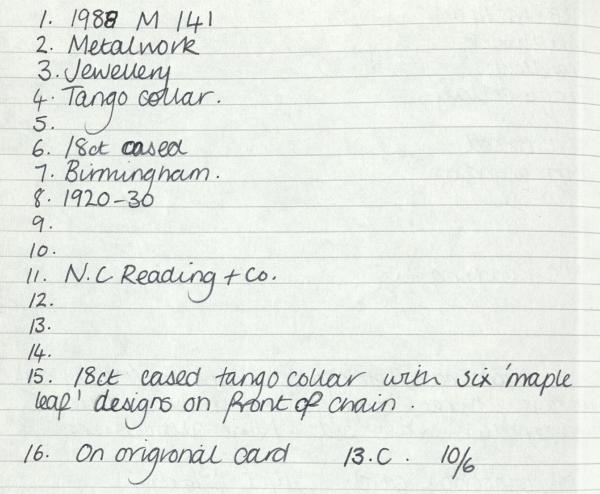 1. 1988 M 141
2. Metalwork
3. Jewellery
4. Tango collar.
5.
6. 18ct cased
7. Birmingham.
8. 1920-30
9.
10.
11. N.C Reading + Co.
12.
13.
14.
15. 18ct cased tango collar with six 'maple
leaf' designs on front of chain.
16. On origronal card 13.C. 10/6